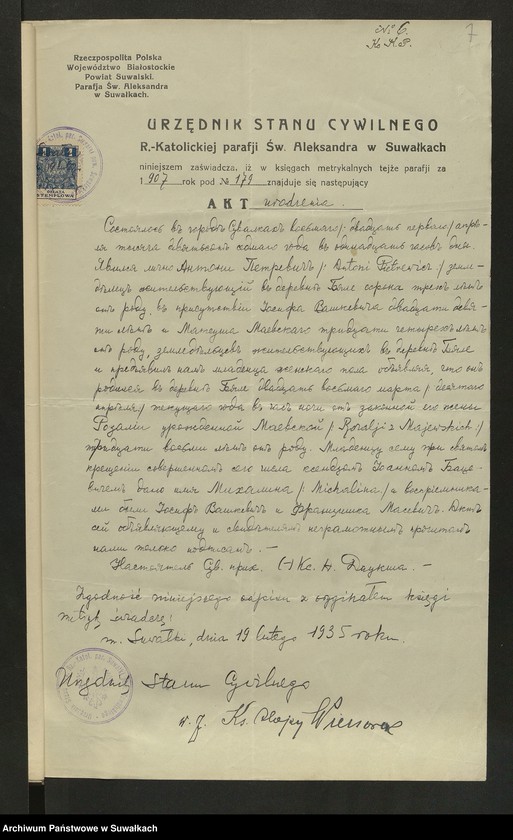 № 6.
K. K. P.
7
Rzeczpospolita Polska
Województwo Białostockie
Powiat Suwalski.
Parafja Św. Aleksandra
w Suwałkach.
URZĘDNIK STANU CYWILNEGO
R.-Katolickiej parafji Św. Aleksandra w Suwałkach
niniejszem zaświadcza, iż w księgach metrykalnych tejże parafji za
1907 rok pod № 179 znajduje się następujący
AKT urodzenia.
Состоялось въ городѣ Сувалкахъ восьмаго /: двадцать перваго :/ апрѣ-
ля тысяча девятьсотъ седьмаго года въ одинадцать часовъ дня.
Явился лично Антони Петревичъ /: Antoni Pietrewicz :/ земле-
дѣлецъ жительствующій въ деревнѣ Бяле сорока трехъ лѣтъ
отъ роду, въ присутствіи Іосифа Вашкевича двадцати девя-
ти лѣтъ и Матеуша Маевскаго тридцати четырехъ лѣтъ
отъ роду, земледѣльцевъ жительствующихъ въ деревнѣ Бяле
и предъявилъ намъ младенца женскаго пола объявляя, что онъ
родился въ деревнѣ Бяле двадцать восьмаго марта /: десятаго
апрѣля :/ текущаго года въ часъ ночи отъ законной его жены
Розаліи урожденной Маевской /: Rozalji z Majewskich :/
тридцати восьми лѣтъ отъ роду. Младенцу сему при святомъ
крещеніи совершенномъ сего числа ксендзомъ Іоанномъ
дано имя Михалина /: Michalina :/ а воспріемника-
ми были Іосифъ Вашкевичъ и Францишка Масевичъ. Актъ
сей объявляющему и свидѣтелямъ неграмотнымъ прочитанъ
нами только подписанъ. —
Настоятель Св. прих. (-) Кс. Н. Даукша. —
Zgodność niniejszego odpisu z oryginałem księgi
metryk świadczę:
m. Suwałki, dnia 19 lutego 1935 roku.
Urzędnik Stanu Cywilnego
w. z. Ks.
Archiwum Państwowe w Suwałkach